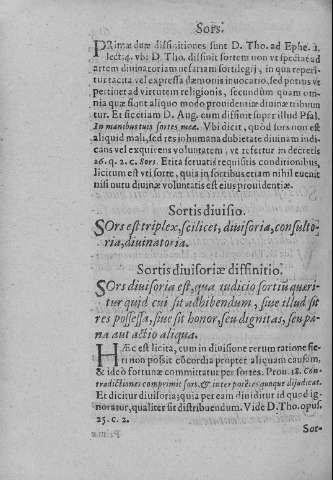 Sors.
PRimæ duæ diffinitiones sunt D. Tho. ad Ephe. 1.
lect. 4. vbi D. Tho. diffinit sortem non vt spectat ad
artem diuinatoriam nefariam sortilegij, in qua reperi
tur tacita vel expressa dæmonis inuocatio, sed potius vt
pertinet ad virtutem religionis, secundum quam om-
nia quæ sunt aliquo modo prouidentiæ diuinæ tribuun
tur. Et sic etiam D. Aug. eum diffinit super illud Psal.
In manibus tuis sortes meæ. Vbi dicit, quod sors non est
aliquid mali, sed res in humana dubietate diuinam indi-
cans vel exquirens voluntatem, vt refertur in decretis
26. q. 2. c. Sors. Et ita seruatis requisitis conditionibus,
licitum est vti sorte, quia in sortibus etiam nihil euenit
nisi nutu diuinæ voluntatis est eius prouidentiæ.
Sortis diuisio.
SOrs est triplex, scilicet, diuisoria, consulto-
ria, diuinatoria.
Sortis diuisoriæ diffinitio.
SOrs diuisoria est, qua iudicio sortiū quæri
tur quid cui sit adhibendum, siue illud sit
res possessa, siue sit honor, seu dignitas, seu pœ-
na aut actio aliqua.
HÆc est licita, cum in diuisione rerum ratione fie-
ri non possit cōcordia propter aliquam causam,
& ideò fortunæ committatur per sortes. Prou. 18. Con-
tradictiones comprimit sors, & inter potētes quoque dijudicat.
Et dicitur diuisoria; quia per eam diuiditur id quod ig-
noratur, qualiter sit distribuendum. Vide D. Tho. opus.
25. c. 2.
Sor-